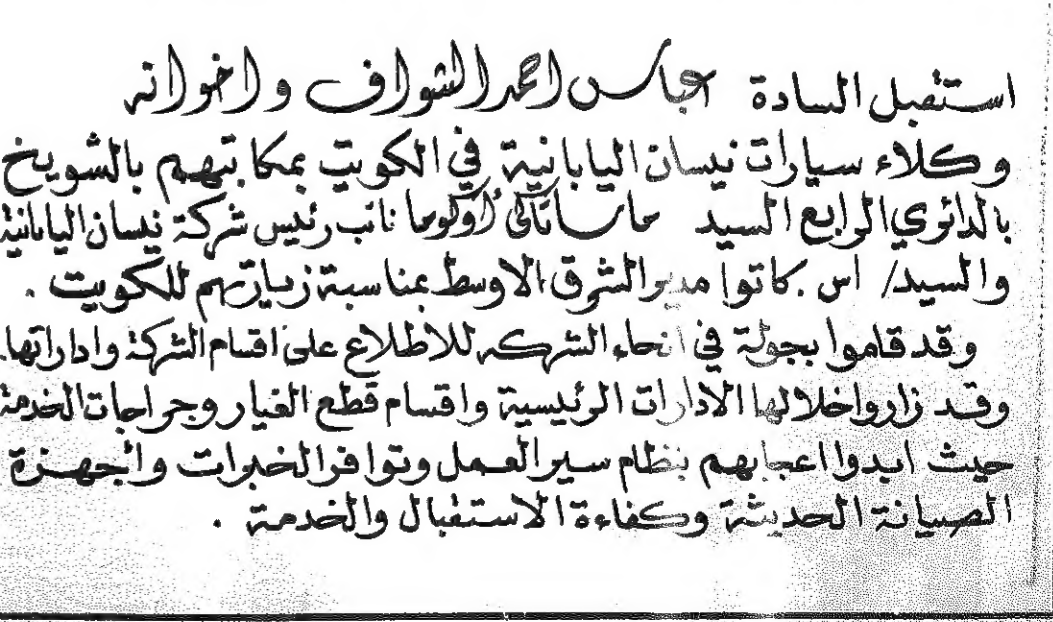 استقبل السادة عباس احمد الشواف واخوانه
وكلاء سيارات نيسان اليابانية في الكويت بمكاتبهم بالشويخ
بالدائري الرابع السيد ماساتاكي أوكوما نائب رئيس شركة نيسان اليابانية
والسيد/ اس . كاتو مدير الشرق الاوسط بمناسبة زيارتهم للكويت .
وقد قاموا بجولة في انحاء الشركه للاطلاع على اقسام الشركة واداراتها.
وقد زاروا خلالها الادارات الرئيسية واقسام قطع الغيار وجراجات الخدمة
حيث ابدوا اعجابهم بنظام سير العمل وتوافر الخبرات وأجهزة
الصيانة الحديثة وكفاءة الاستقبال والخدمة .